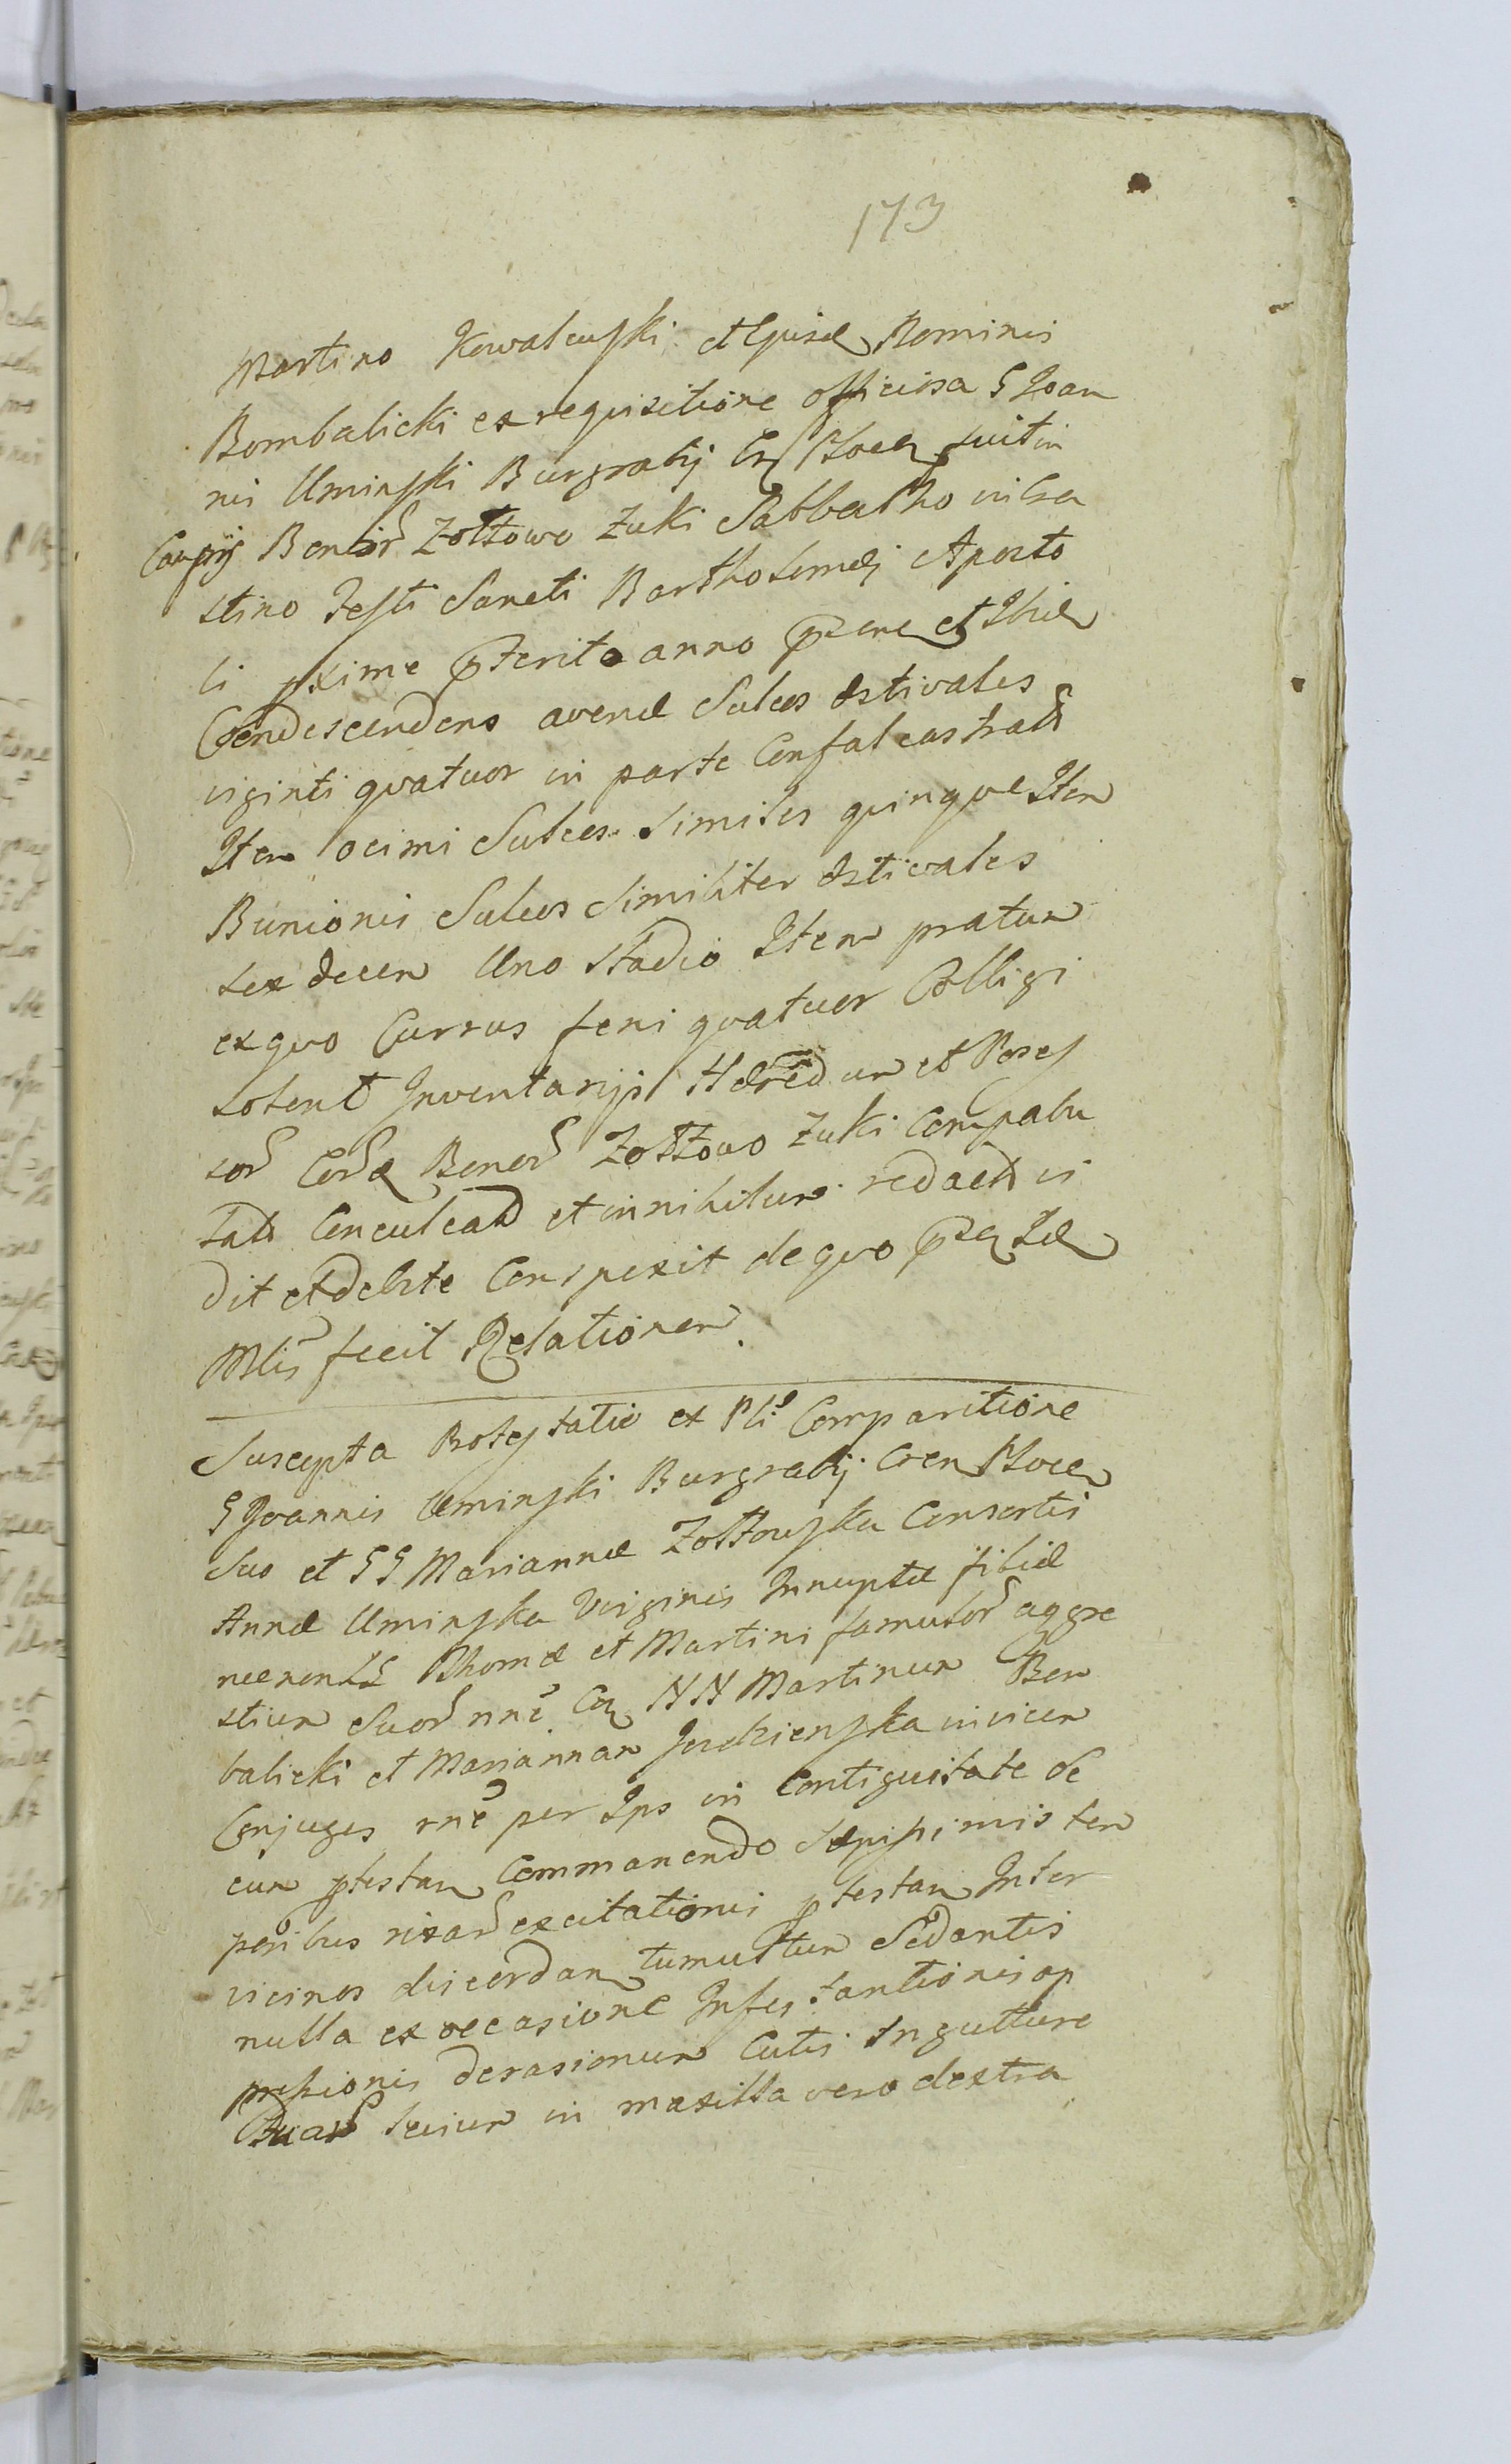 173
Martino Kowalewski et Ejusd Nominis
Bombalicki ex requisitione officiosa G Joan
nis Uminski Burgrabij Cr Plocen fuit in
Campis Bonor Zołtowo Zuki Sabbatho in Cra
stino Festi Sancti Bartholomei Aposto
li pxime pterito anno pzene et Ibid
Condescendens avenae Sulcos aestivales
viginti quatuor in parte Confalcastrat
Item ocimi Sulcos similes quinque Item
Bunionis Sulcos Similiter aestivales
sex decem Uno Stadio Item pratum
ex quo Currus feni quatuor Colligi
solent Inventarijs Haeredum et Posses
sor Cord Bonor Zołtowo Zuki Compabu
lat Conculcat et in nihilum redact vi
dit et debite Conspexit de quo pze Id
Mlis fecit Relationem
Suscepta Protestatio ex Pli Comparitione
G Joannis Uminski Burgrabij Cren Plocen
Suo et GG Mariannae Zołtowska Consortis
Annae Uminska Virginis Innuptae filiae
nec non LL Thomae et Martini famulor aggre
stium Suor nne Coa NN Martinum Bom
balicki et Mariannam Jendzienska invicem
Conjuges rne per Ips in Contiguitate de
cum ptestan Commanendo Saepissimis tem
poribus rixar excitationis ptestan Inter
vicinos discordan tumultum Sedantis
nulla ex occasione Infestantionis op
pressionis derasionum Cutis In gutture
Duar levium in maxilla vero dextra